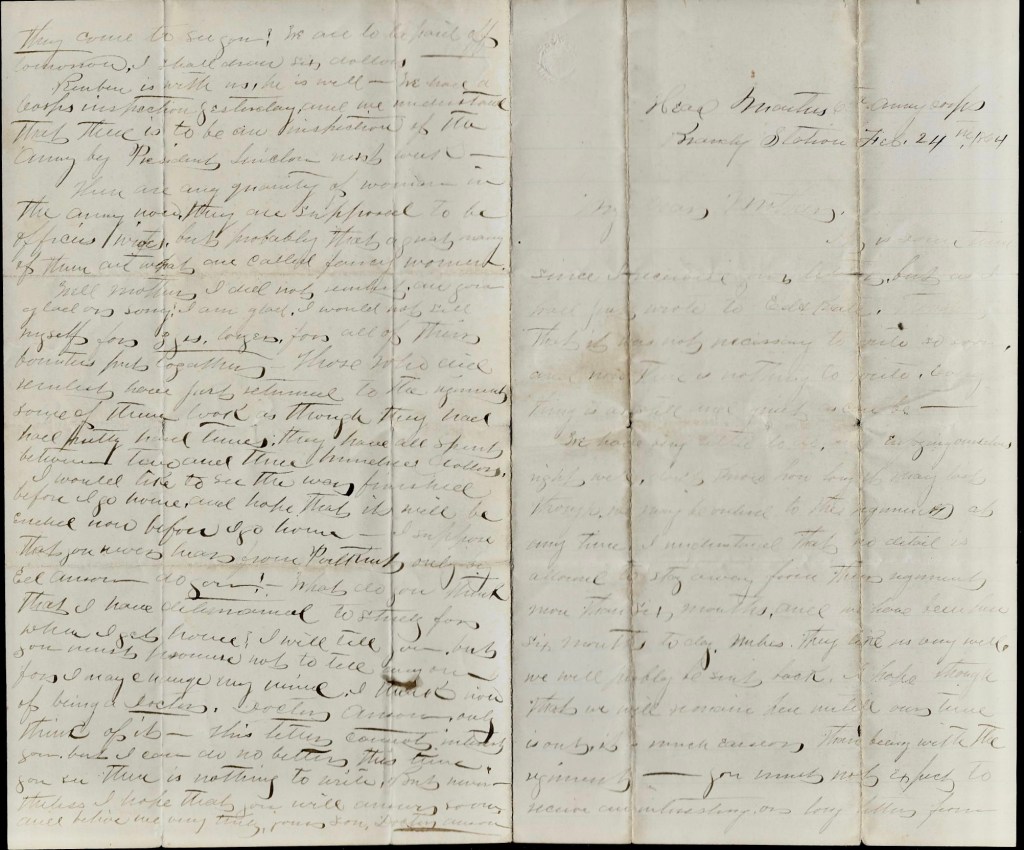 They come to see you! We are to be paid off
tomorrow, I shall draw six dollars.
Reuben is with us, he is well — We have a
Corps inspection yesterday and we understand
that there is to be an inspection of the
Army by President Lincoln next week —
There are any quantity of women in
the army now, they are supposed to be
officers wives, but probably that a great many
of them are what are called fancy women.
Well mother, I did not reenlist, are you
glad or sorry? I am glad, I would not sell
myself for 3 yrs. longer, for all of their
bounties put together — Those who did
reenlist have just returned to the regiment
some of them look as though they had
had pretty hard times, they have all spent
between two and three hundred dollars.
I would like to see the war finished
before I go home, and hope that it will be
ended now before I go home — I suppose
that you never hear from only of
Ed Anson — do you! — What do you think
that I have determined to study for
when I get home? I will tell you, but
you must promise not to tell any one
for I may change my mind. I think now
of being a Doctor. Doctor Anson, only
think of it — This letter cannot interest
you, but I can do no better this time,
you see there is nothing to write, But never-
theless I hope that you will answer soon
and believe me very truly, yours son, Doctor Anson
Head Quarters 6th army corps
Brandy Station Feb. 24th, 1864
My dear Mother,
It is some time
since I received your letter, but as I
had just wrote to
that it was not necessary to write so soon,
and now there is nothing to write. Every
thing is as still and quiet as can be —
We have very little to do, and enjoying ourselves
right well, don't know how long it may last
though, we may be ordered to the regiment at
any time, I understand that no detail is
allowed to stay away from their regiment
more than six months, and we have been here
six months to day. Unless they like us very well,
we will probly be sent back. I hope though
that we will remain here until our time
is out, it is much easier than being with the
regiment — you must not expect to
receive an interesting or long letter from